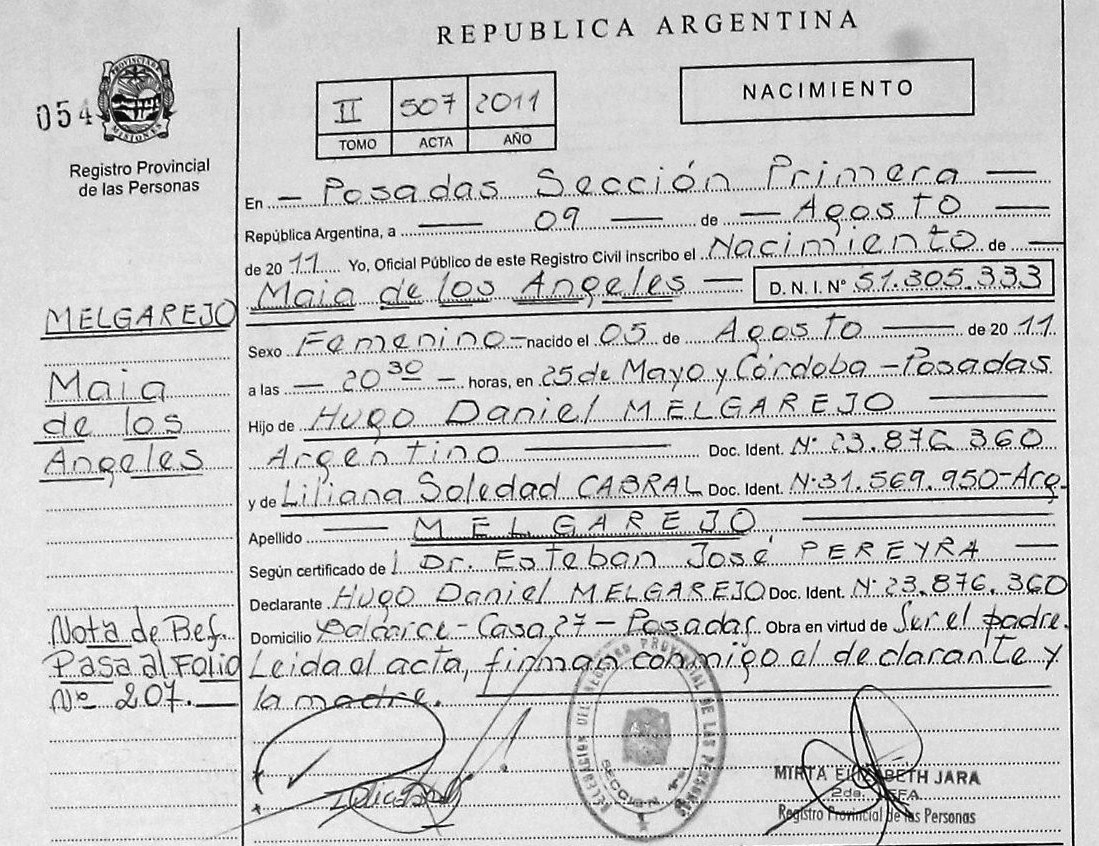 REPUBLICA ARGENTINA
054
PROVINCIA DE MISIONES
Registro Provincial
de las Personas
II 507 2011
TOMO ACTA AÑO
NACIMIENTO
En — Posadas Sección Primera —
República Argentina, a — 09 — de — Agosto —
de 2011 Yo, Oficial Público de este Registro Civil inscribo el Nacimiento de —
Maia de los Angeles — D. N. I. Nº 51.305.333
Sexo Femenino — nacido el 05 de Agosto — de 2011
a las — 20 30 — horas, en 25 de Mayo y Córdoba - Posadas
Hijo de Hugo Daniel MELGAREJO —
Argentino — Doc. Ident. Nº 23.876.360
y de Liliana Soledad CABRAL Doc. Ident. Nº 31.569.950 - Arg.
Apellido — MELGAREJO —
Según certificado de Dr. Esteban José PEREYRA —
Declarante Hugo Daniel MELGAREJO Doc. Ident. Nº 23.876.360
Domicilio Balcarce - Casa 27 - Posadas Obra en virtud de Ser el padre.
Leida el acta, firman conmigo el declarante y
la madre.
MELGAREJO
Maia
de los
Angeles
Nota de Ref.
Pasa al Folio
Nº 207. —
DELEGACION DEL REGISTRO PROVINCIAL DE LAS PERSONAS
SECCION 1ª
MIRTA ELIZABETH JARA
2da. JEFA
Registro Provincial de las Personas